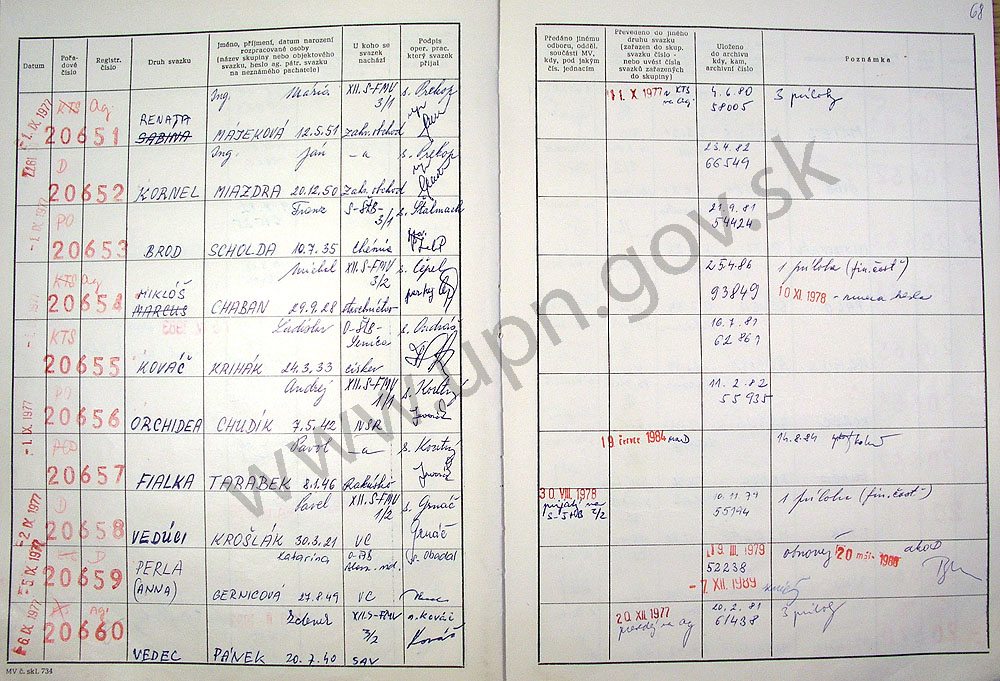 68
Datum
Pořa-
dové
číslo
Registr.
číslo
Druh svazku
Jméno, příjmení, datum narození
rozpracované osoby
(název skupiny nebo objektového
svazku, heslo ag. pátr. svazku
na neznámého pachatele)
U koho se
svazek
nachází
Podpis
oper. prac.
který svazek
přijal
Předáno jinému
odboru, odděl.
součásti MV,
kdy, pod jakým
čís. jednacím
Převedeno do jiného
druhu svazku
(zařazen do skup.
svazku číslo -
nebo uvést čísla
svazků zařazených
do skupiny)
Uloženo
do archivu
kdy, kam,
archivní číslo
Poznámka
-1. IX. 1977
KTS Ag.
20651
RENATA
SABINA
Ing. Mária
MÁJEKOVÁ 12.5.51
XII. S-FMV
3/1
zahr. obchod
s. Prekop
1. X. 1977 z KTS
na Ag.
4. 6. 80
58005
3 prílohy
D
20652
KORNEL
Ing. Ján
MIAZDRA 20.12.50
-a
zahr. obchod
s. Prekop
23.4.82
66549
-1. IX. 1977
PO
20653
BROD
Franz
SCHOLDA 10.7.35
S-ŠtB-
3/1
s. Štalmach
21.9.81
54424
KTS Ag
20654
MIKLÓŠ
MARCUS
Michal
CHABAN 29.9.28
XII. S-FMV
3/2
s. Čepel
25.4.86
93849
1 príloha (fin. časť)
10 XI. 1978 - zmena hesla
KTS
20655
KOVÁČ
Ladislav
KRIHÁK 24.3.33
O-ŠtB-
Senica
cirkev
s. Andráš
16.7.81
62861
PO
20656
ORCHIDEA
Andrej
CHUDÍK 7.5.42
XII. S-FMV
1/1
NSR
11. 2. 82
55935
-1. IX. 1977
20657
FIALKA
Pavol
TARÁBEK 8.1.46
-a
Rakúsko
19 července 1984
14.8.84
-2. IX. 1977
D
20658
VEDÚCI
Pavel
KROŠLÁK 30.3.21
XII. S-FMV
1/2
VC
s. Grnáč
Grnáč
30. VIII. 1978
10. 11. 79
55194
1 príloha (fin. časť)
-5. IX. 1977
D
20659
PERLA
(ANNA)
Katarína
GERNICOVÁ 27.8.49
VC
s. Obadal
19. III. 1979
52238
-7. XII. 1989
obnovený 20 akoD
-6. IX. 1977
Ag.
20660
VEDEC
Zdenek
PÁNEK 20.7.40
XII. S-FMV
3/2
SAV
s. Kováč
Kováč
20. XII. 1977
20. 2. 81
61438
3 prílohy
MV č. skl. 734
www.upn.gov.sk